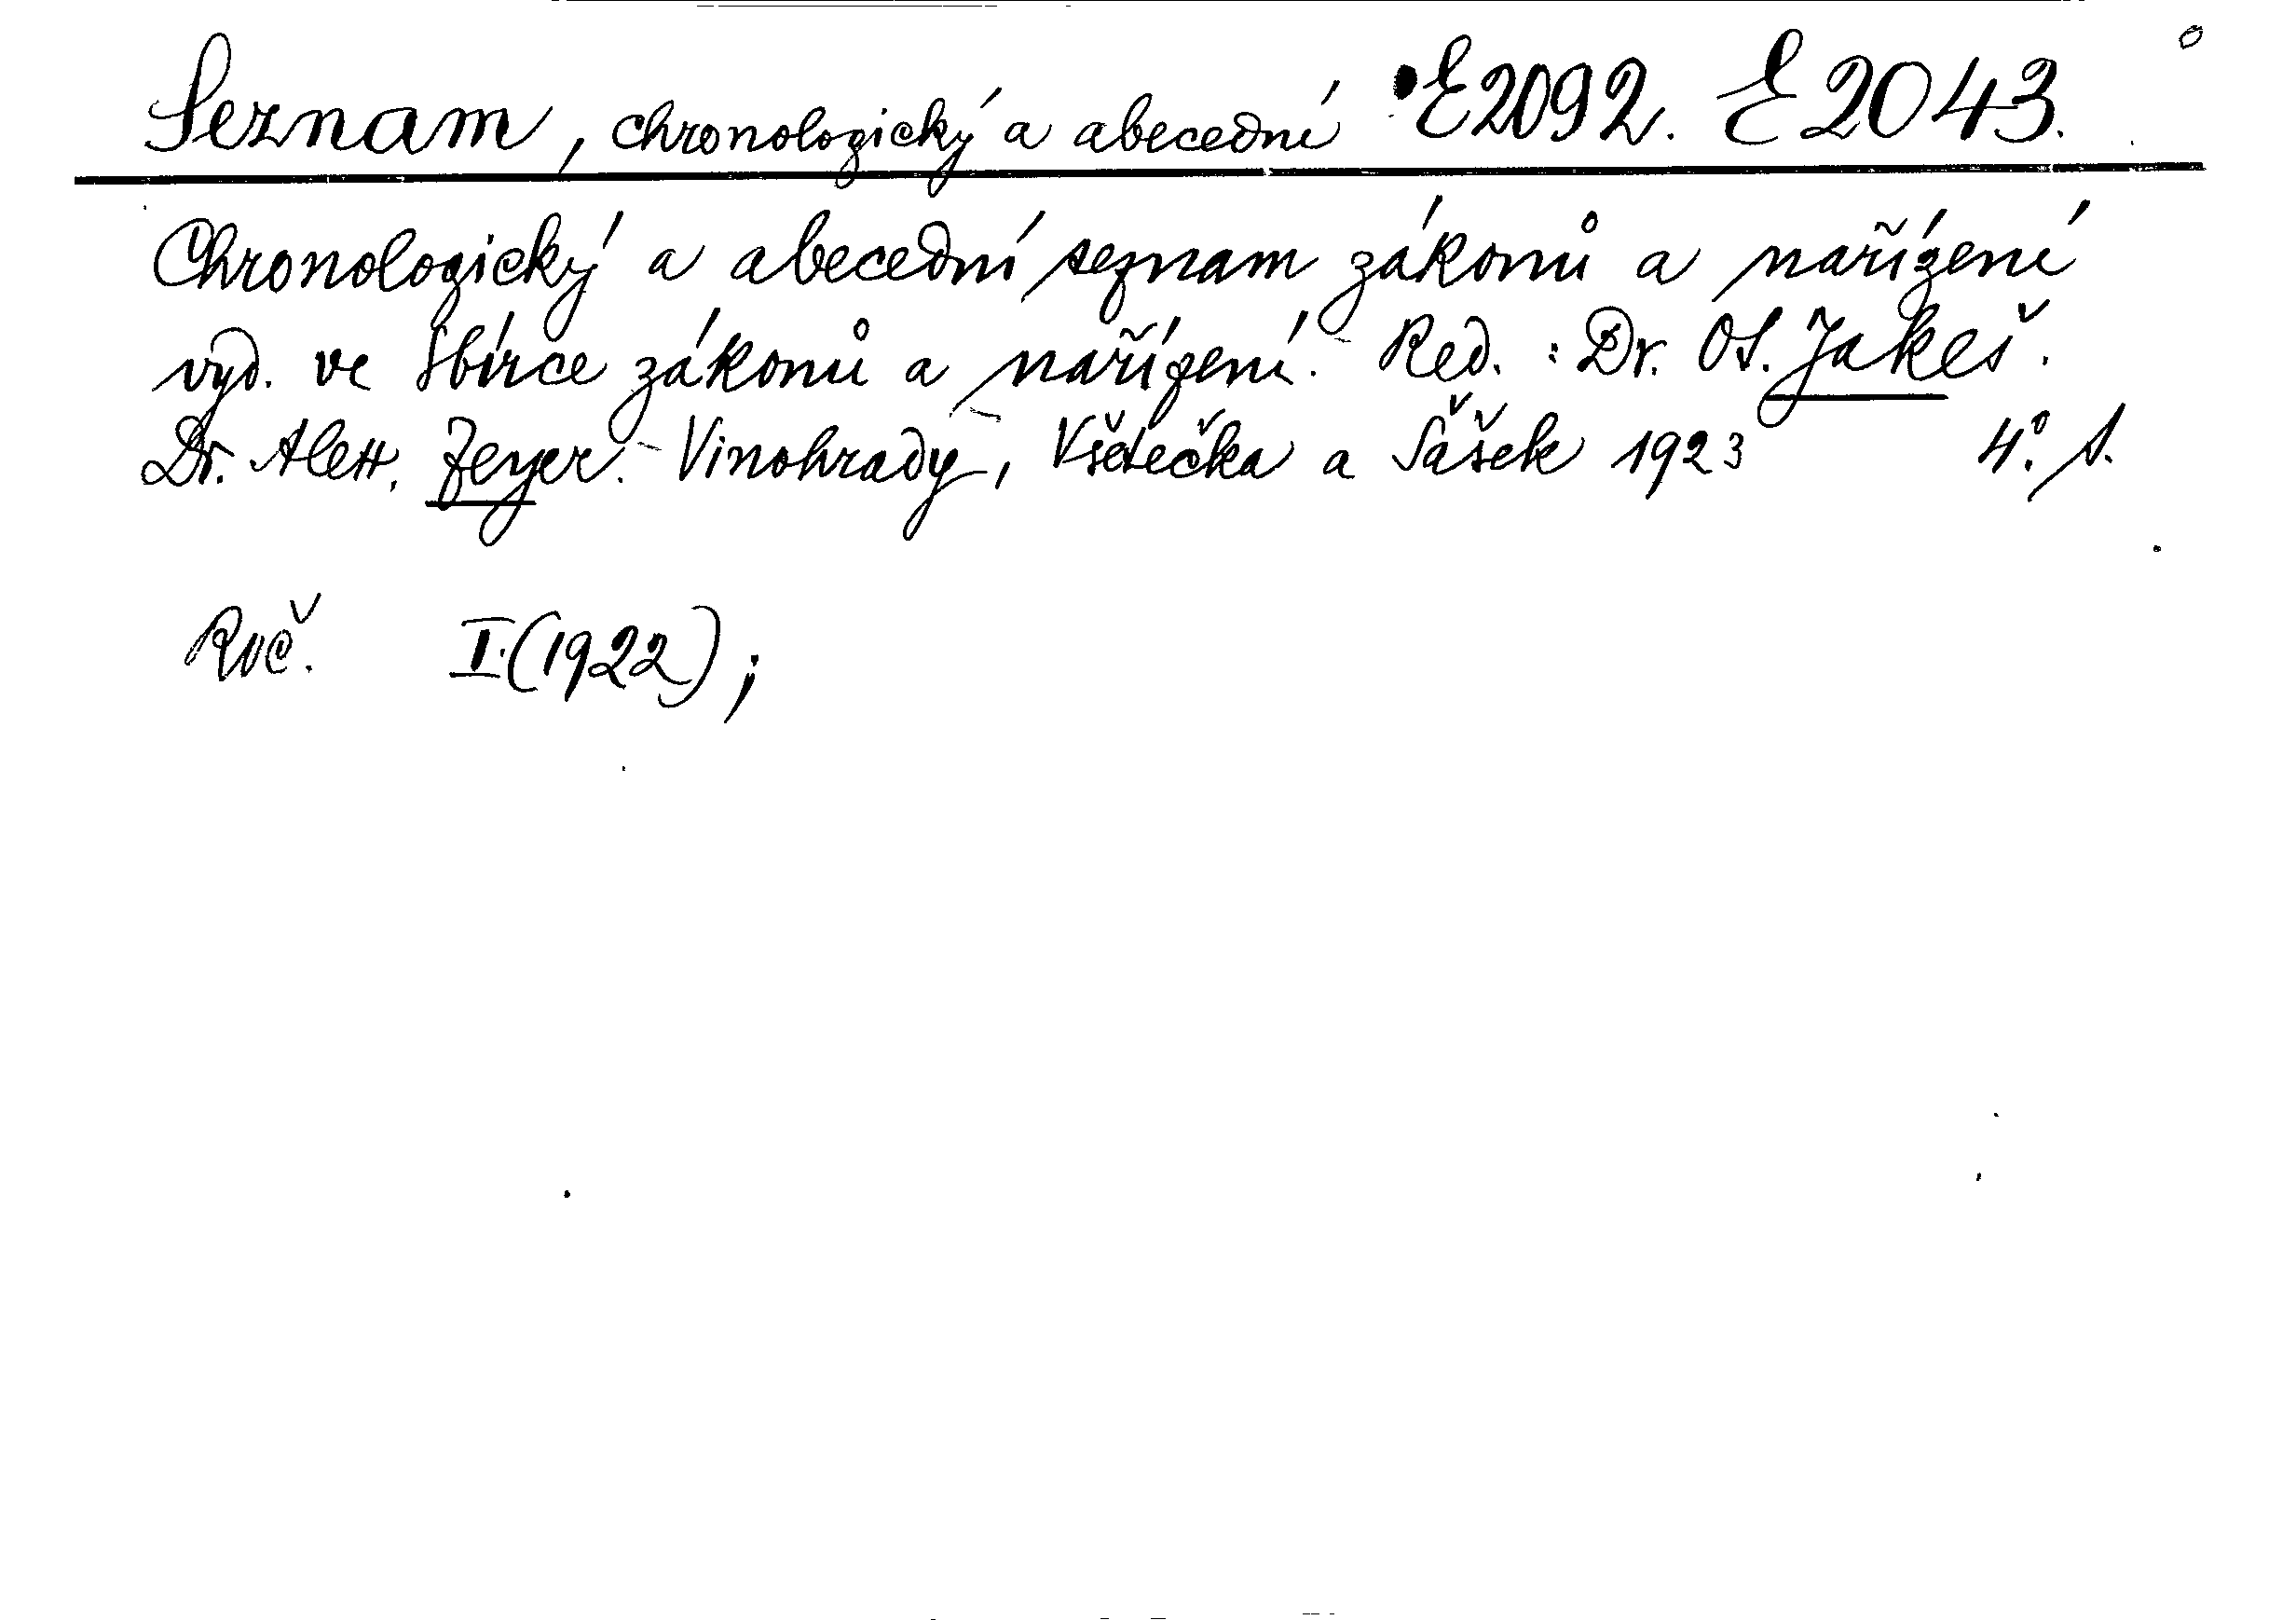 Seznam, chronologický a abecední E2092. E2043.
Chronologický a abecední seznam zákonů a nařízení
vyd. ve Sbírce zákonů a nařízení. - Red.: Dr. Ot. Jakeš.
Dr. Alex. Zeyer. - Vinohrady, Všetečka a Sášek 1923 4°. s.
Roč. I.(1922);